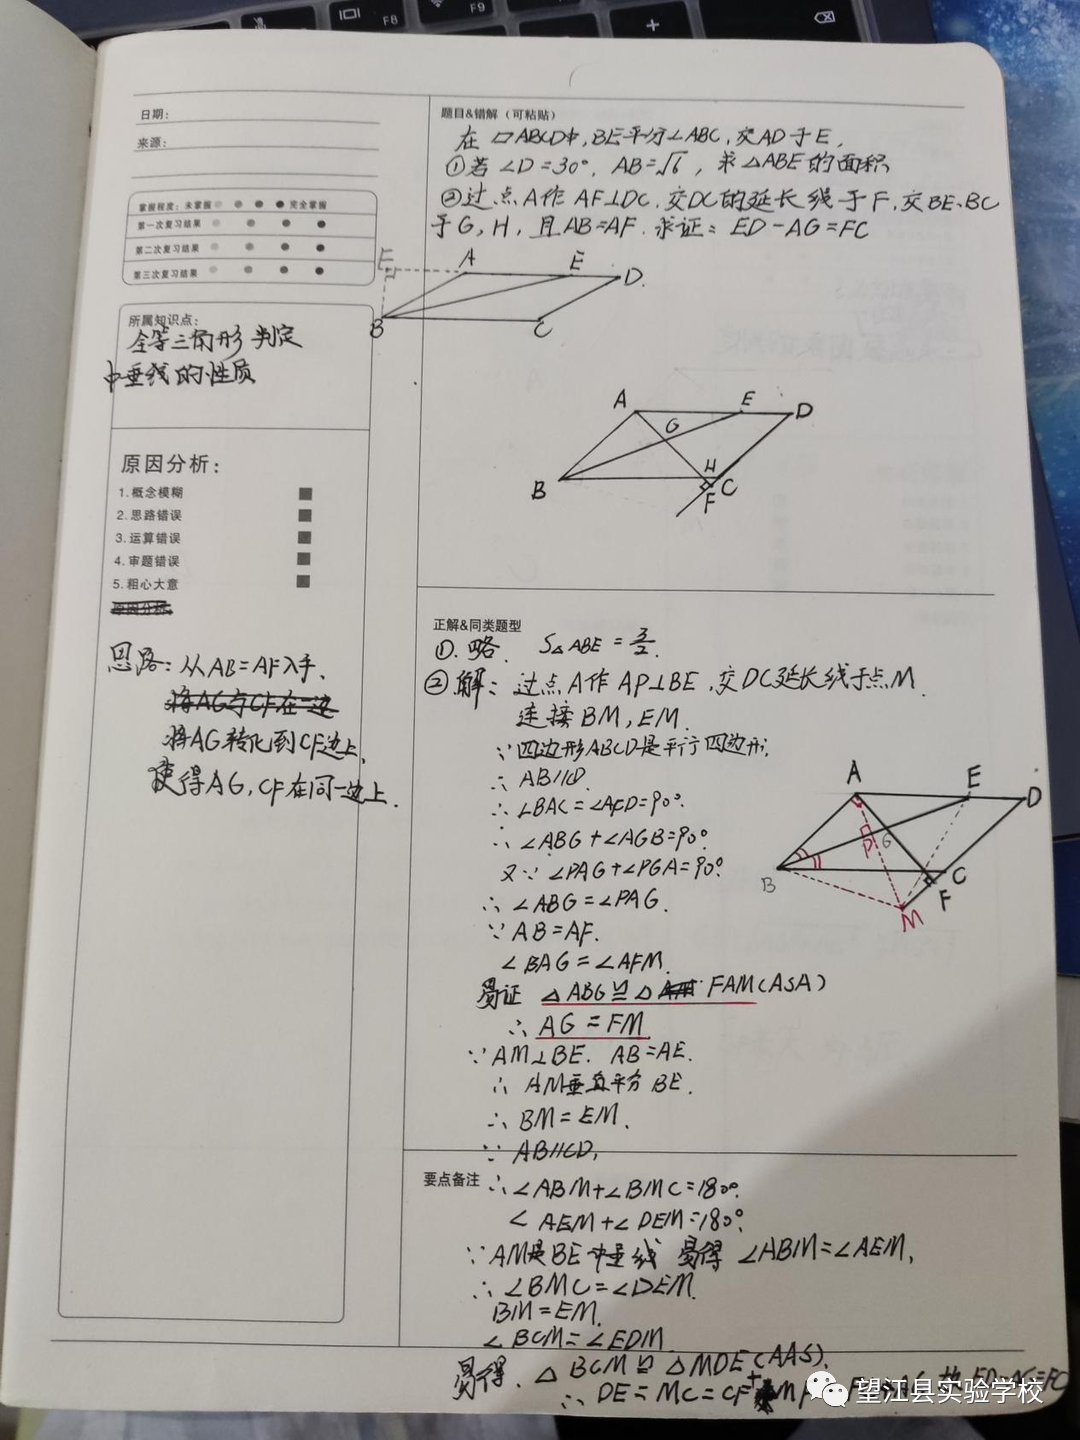 F8
F9
日期：
来源：
掌握程度：未掌握 完全掌握
第一次复习结果
第二次复习结果
第三次复习结果
所属知识点：
全等三角形判定
中垂线的性质
原因分析：
1.概念模糊
2.思路错误
3.运算错误
4.审题错误
5.粗心大意
思路：从AB=AF入手、
将AG与CF在一边
将AG转化到CF边上，
使得AG，CF在同一边上．
题目&错解（可粘贴）
在▱ABCD中，BE平分∠ABC，交AD于E，
①若∠D=30°，AB=√6，求△ABE的面积
②过点A作AF⊥DC，交DC的延长线于F，交BE、BC
于G，H，且AB=AF．求证：ED-AG=FC
A E D
B C
A E D
G
B H C
F
正解&同类题型
①．略． S△ABE=3/2．
②解：过点A作AP⊥BE，交DC延长线于点M．
连接BM，EM．
∵四边形ABCD是平行四边形．
∴AB∥CD．
∴∠BAC=∠AFD=90°．
∴∠ABG+∠AGB=90°
又∵∠PAG+∠PGA=90°．
∴∠ABG=∠PAG．
∵AB=AF．
∠BAG=∠AFM．
易证 △ABG≌△FAM(ASA)
∴AG=FM
∵AM⊥BE．AB=AE．
∴AM垂直平分BE．
∴BM=EM．
∵AB∥CD，
A E D
P G
B C
F
M
要点备注
∴∠ABM+∠BMC=180°．
∠AEM+∠DEM=180°．
∵AM是BE中垂线 易得∠ABM=∠AEM，
∴∠BMC=∠DEM．
BM=EM．
∠BCM=∠EDM
易得．△BCM≌△MDE(AAS)．
∴DE=MC=CF+MF
ED-AG=FC
望江县实验学校